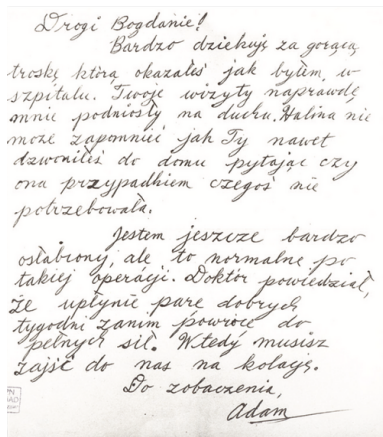 Drogi Bogdanie!
Bardzo dziekuję za gorącą
troskę którą okazałeś jak byłem, w
szpitalu. Twoje wizyty naprawdę
mnie podniosły na duchu. Halina nie
może zapomnieć jak Ty nawet
dzwoniłeś do domu pytając czy
ona przypadkiem czegoś nie
potrzebowała.
Jestem jeszcze bardzo
osłabiony, ale to normalne po
takiej operacji. Doktór powiedział,
że upłynie parę dobrych
tygodni zanim powrócę do
pełnych sił. Wtedy musisz
zajść do nas na kolację.
Do zobaczenia,
Adam